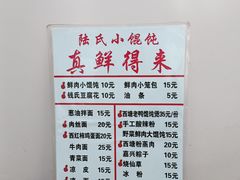 陆氏小馄饨
真鲜得来
鲜肉小馄饨 10元 鲜肉小笼包 15元
钱氏豆腐花 10元 油条 5元
葱油拌面 15元 西塘老鸭馄饨煲 35元/份
肉丝面 20元 手工酸辣粉 15元
西红柿鸡蛋面 20元 野菜鲜肉大馄饨 15元
牛肉面 25元 西塘粉蒸肉 20元
青菜面 15元 嘉兴粽子 10元
凉皮 15元 烧仙草 15元
冰粉 15元